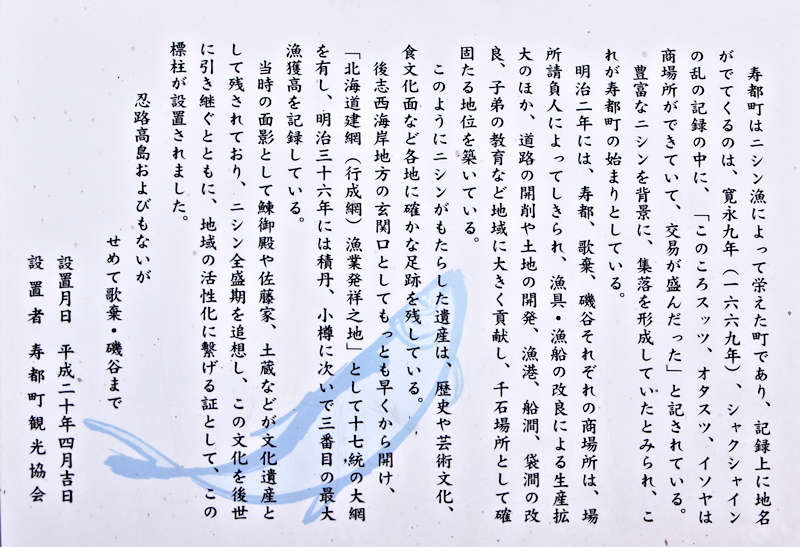 寿都町はニシン漁によって栄えた町であり、記録上に地名
がでてくるのは、寛永九年（一六六九年）、シャクシャイン
の乱の記録の中に、「このころスッツ、オタスツ、イソヤは
商場所ができていて、交易が盛んだった」と記されている。
豊富なニシンを背景に、集落を形成していたとみられ、こ
れが寿都町の始まりとしている。
明治二年には、寿都、歌棄、磯谷それぞれの商場所は、場
所請負人によってしきられ、漁具・漁船の改良による生産拡
大のほか、道路の開削や土地の開発、漁港、船澗、袋澗の改
良、子弟の教育など地域に大きく貢献し、千石場所として確
固たる地位を築いている。
このようにニシンがもたらした遺産は、歴史や芸術文化、
食文化面など各地に確かな足跡を残している。
後志西海岸地方の玄関口としてもっとも早くから開け、
「北海道建網（行成網）漁業発祥之地」として十七統の大網
を有し、明治三十六年には積丹、小樽に次いで三番目の最大
漁獲高を記録している。
当時の面影として鰊御殿や佐藤家、土蔵などが文化遺産と
して残されており、ニシン全盛期を追想し、この文化を後世
に引き継ぐとともに、地域の活性化に繋げる証として、この
標柱が設置されました。
忍路高島およびもないが
せめて歌棄・磯谷まで
設置月日　平成二十年四月吉日
設置者　寿都町観光協会